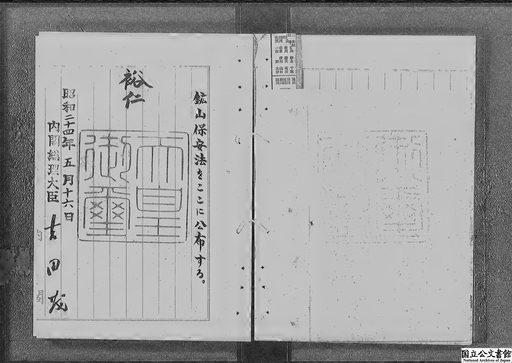 鉱山保安法をここに公布する。
裕仁
天皇御璽
昭和二十四年五月十六日
内閣総理大臣 吉田茂
国立公文書館
National Archives of Japan